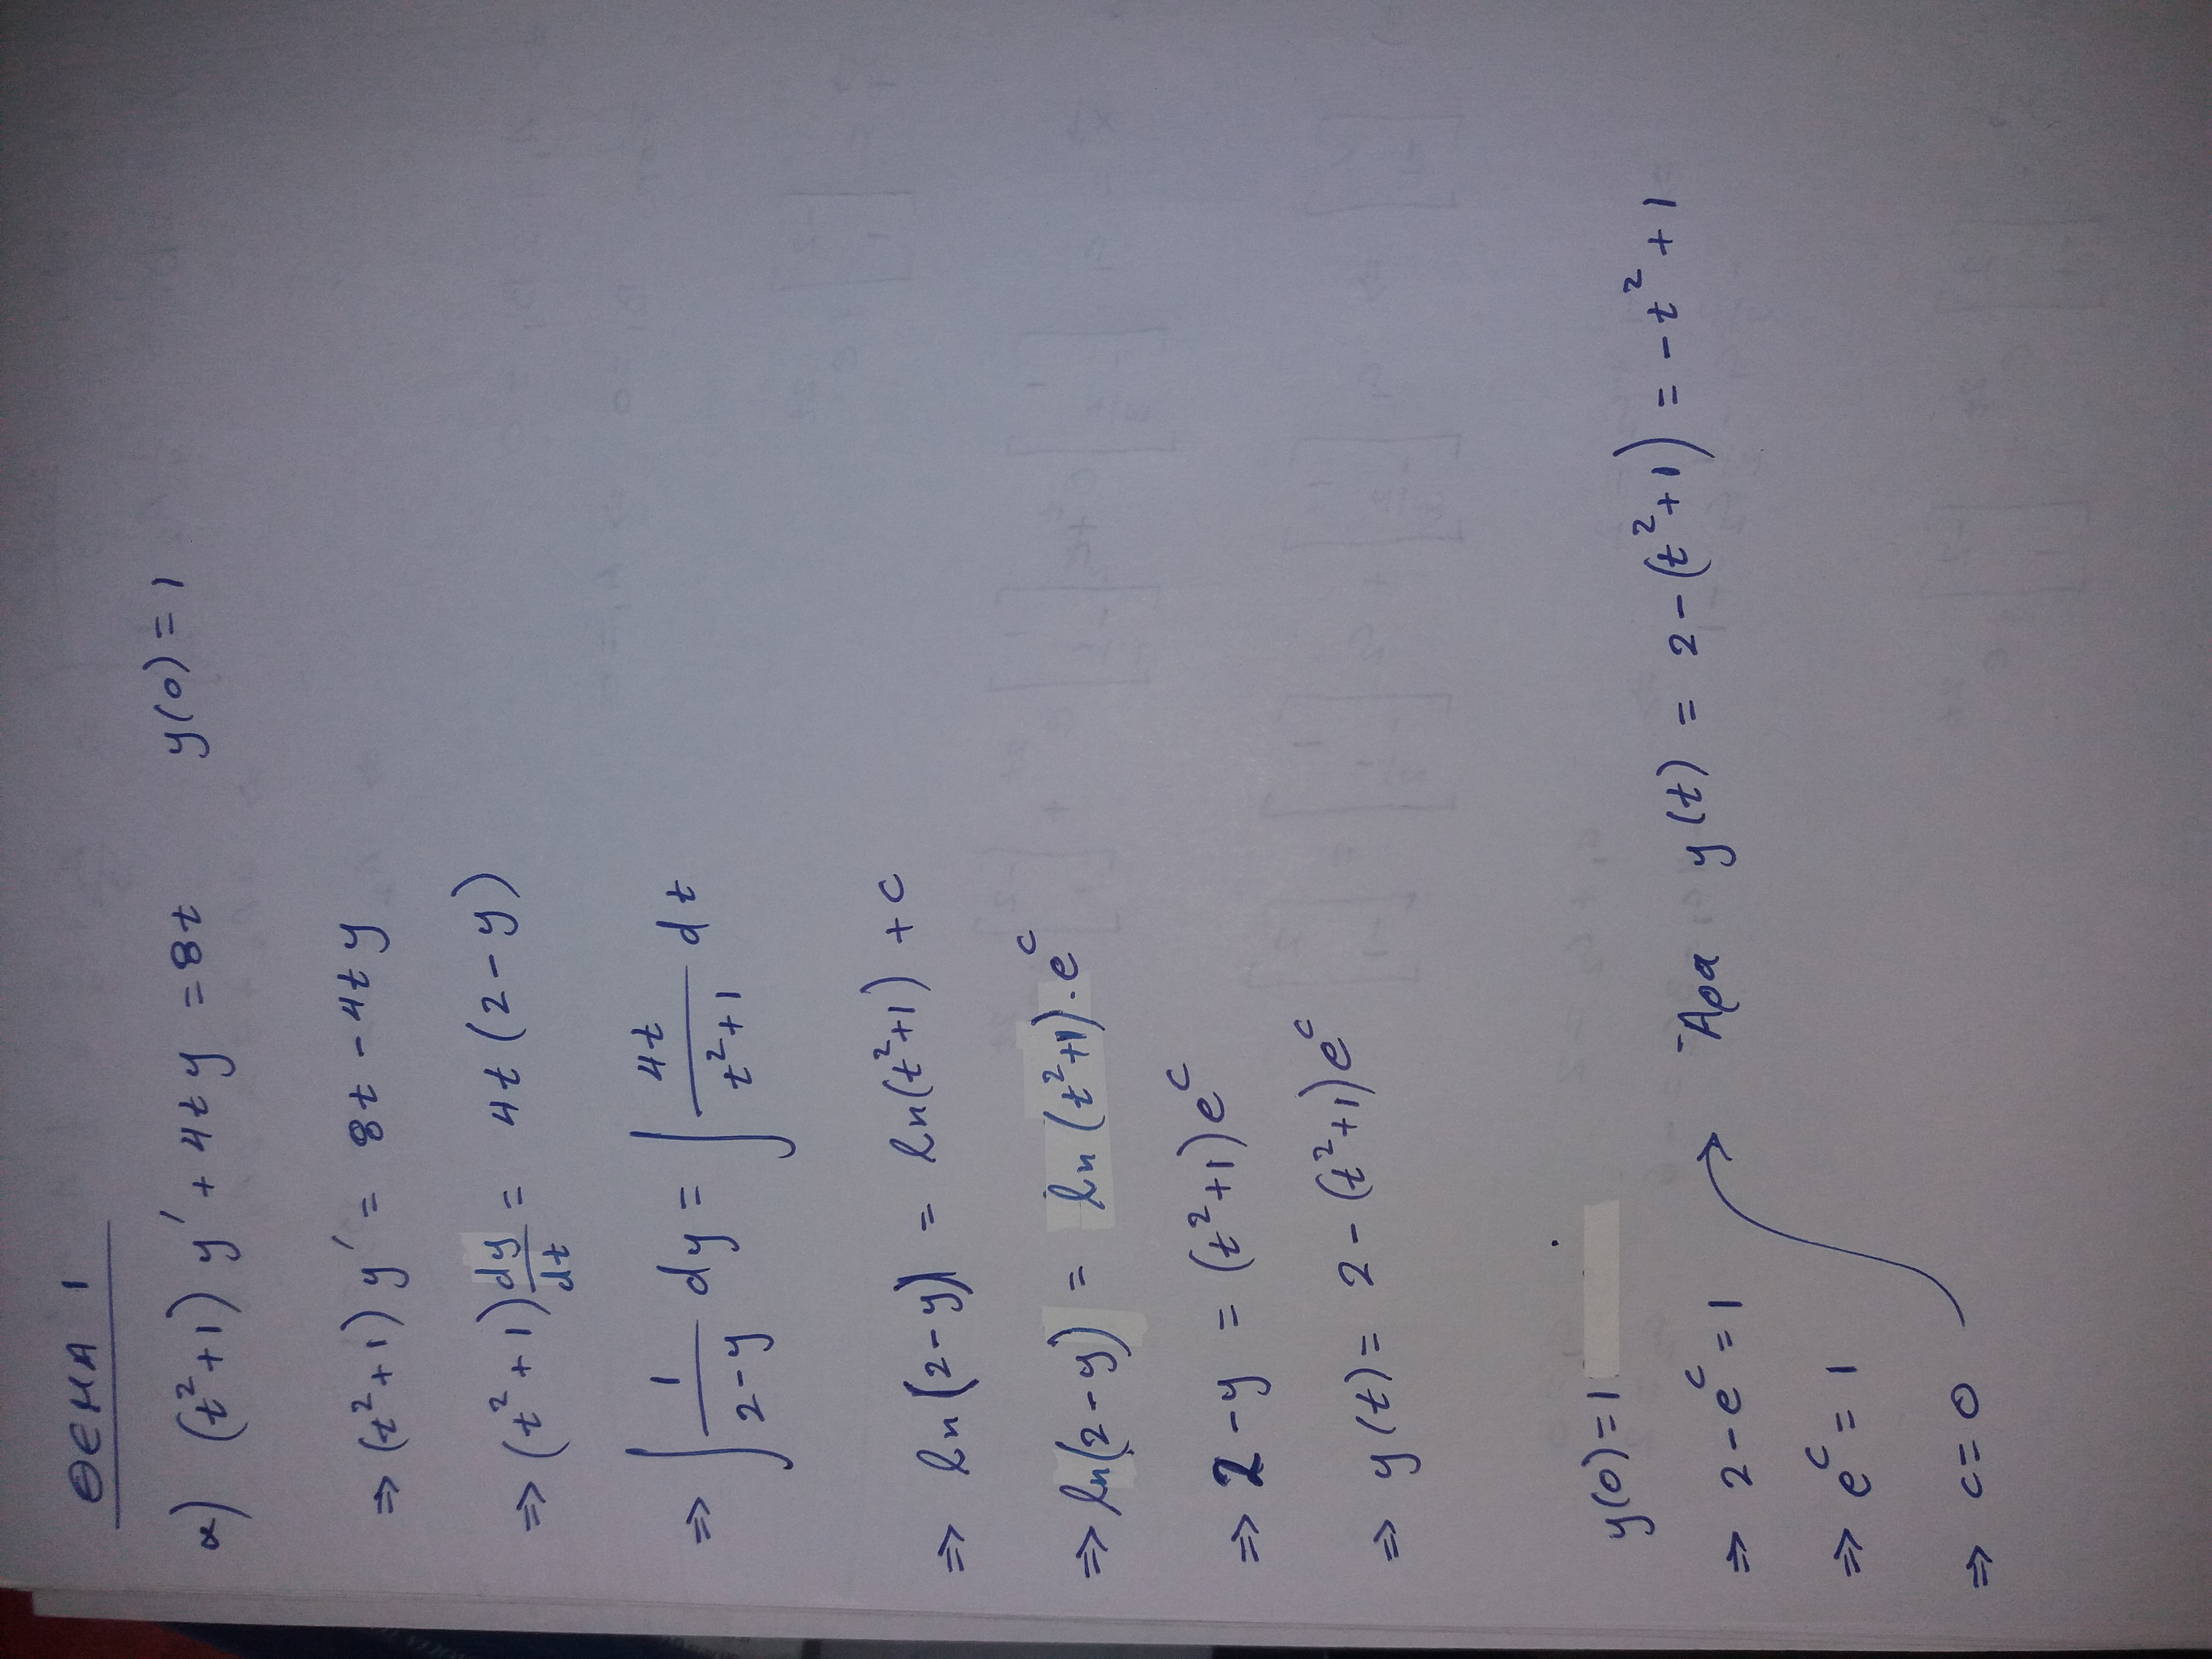 ΘΕΜΑ 1
α) (t²+1) y' + 4ty = 8t y(0) = 1
⇒ (t²+1) y' = 8t - 4ty
⇒ (t²+1) dy/dt = 4t (2-y)
⇒ ∫ 1/(2-y) dy = ∫ 4t/(t²+1) dt
⇒ ln(2-y) = ln(t²+1) + c
⇒ ln(2-y) = ln (t²+1)·e^c
⇒ 2-y = (t²+1)e^c
⇒ y(t) = 2-(t²+1)e^c
y(0)=1
⇒ 2-e^c = 1
⇒ e^c = 1
⇒ c=0
Άρα y(t) = 2-(t²+1) = -t²+1